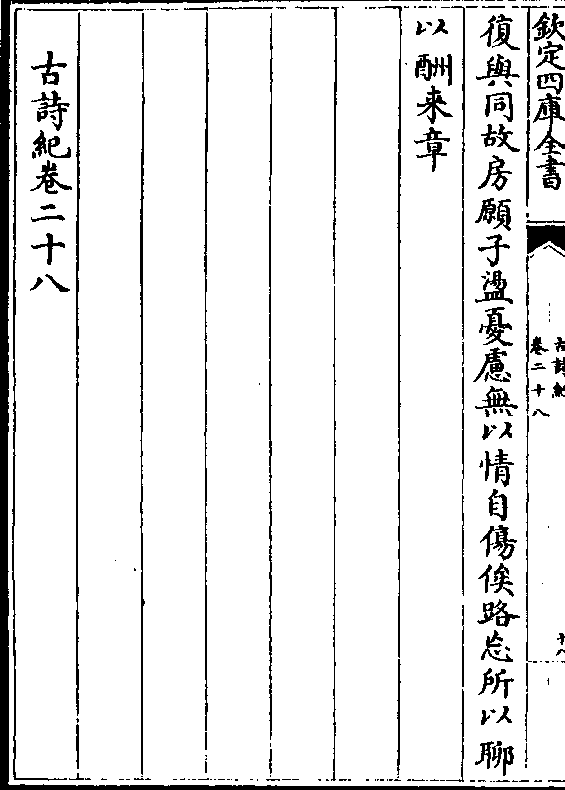 欽定四庫全書
古詩紀
卷二十八
十八
復與同故房願子盪憂慮無以情自傷俟路忘所以聊
以酬来章
古詩紀卷二十八